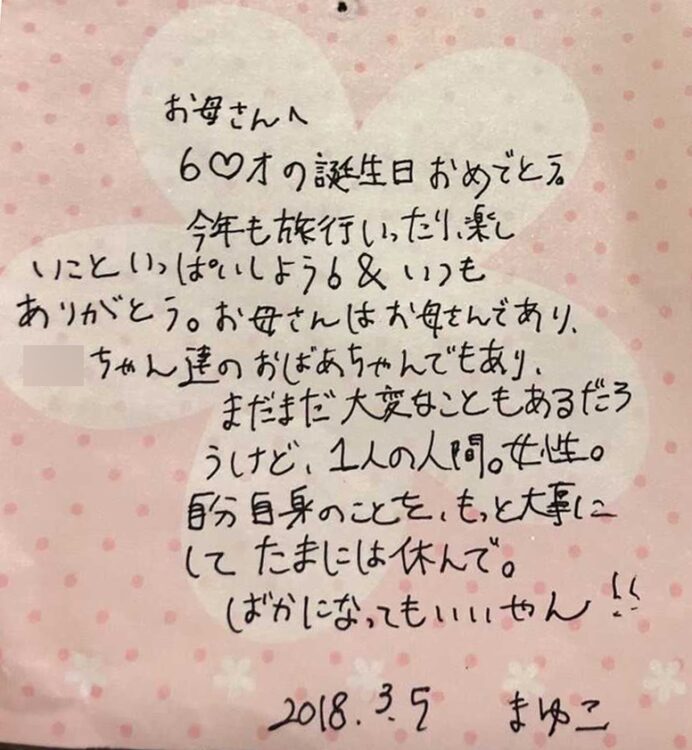 お母さんへ
6♡才の誕生日おめでとう。
今年も旅行いったり、楽し
いこといっぱいしよう6&いつも
ありがとう。お母さんはお母さんであり、
ちゃん達のおばあちゃんでもあり、
まだまだ大変なこともあるだろ
うけど、1人の人間。女性。
自分自身のことを、もっと大事に
してたまには休んで。
ばかになってもいいやん!!
2018.3.5 まゆこ